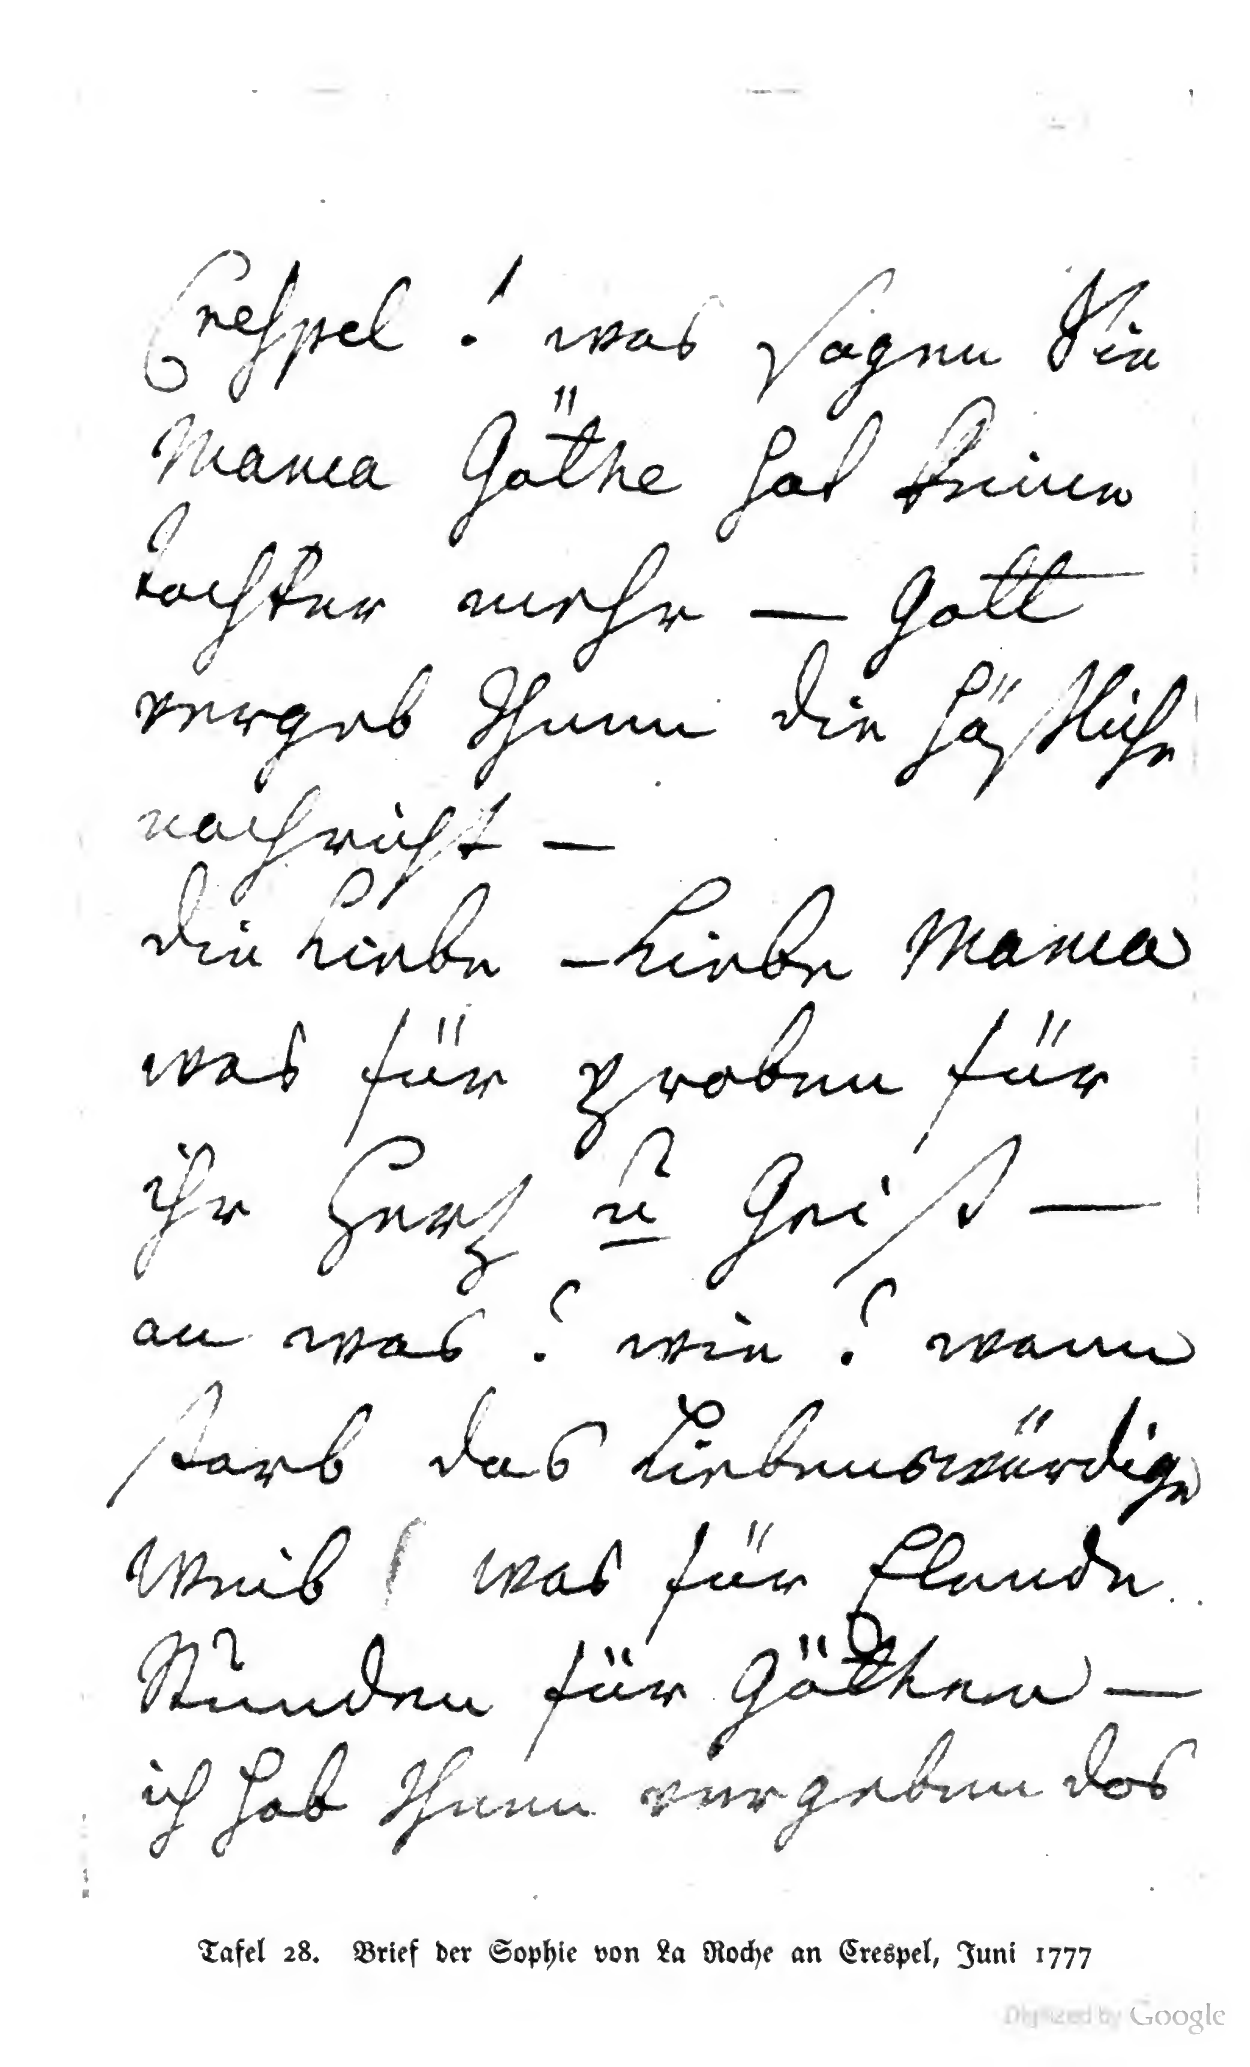 Crespel ! was sagen Sie
Mama Göthe hat keine
tochter mehr — Gott
vergeb Ihnen die häßliche
nachricht —
die Liebe – Liebe Mama
was für proben für
ihr Hertz u Geist —
an was? wie? wann
starb das Liebenswürdige
Weib ! was für Elende
Stunden für Göthen —
ich hab Ihnen vergeben das
Tafel 28. Brief der Sophie von La Roche an Crespel, Juni 1777
Digitized by Google